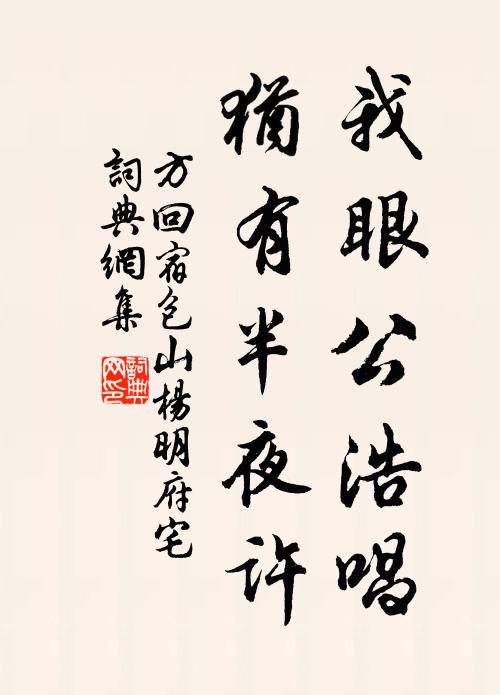 我眼公浩唱
猶有半夜許
方回宿包山楊明府宅
詞典網集
詞典網印